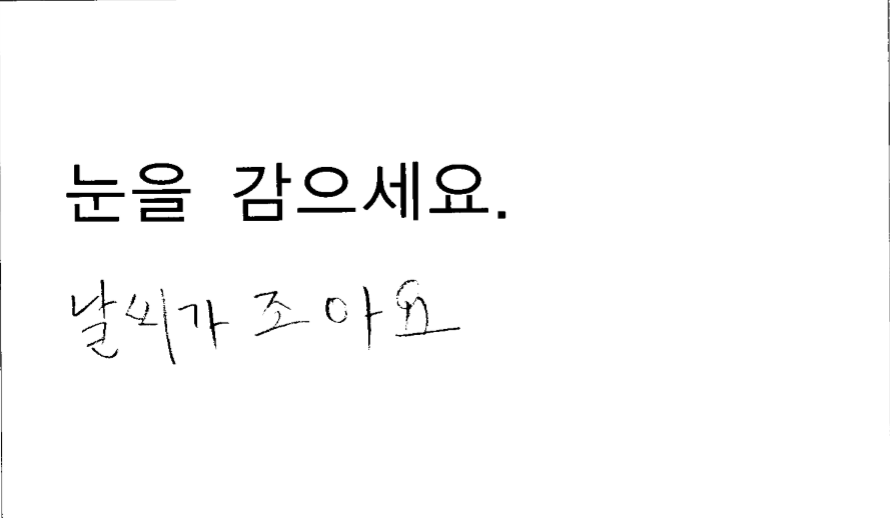 눈을 감으세요.
날씨가 조아요